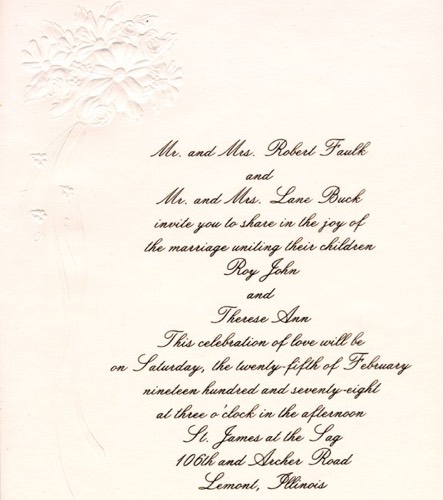 Mr. and Mrs. Robert Faulk
and
Mr. and Mrs. Lane Buck
invite you to share in the joy of
the marriage uniting their children
Roy John
and
Therese Ann
This celebration of love will be
on Saturday, the twenty-fifth of February
nineteen hundred and seventy-eight
at three o'clock in the afternoon
St. James at the Sag
106th and Archer Road
Lemont, Illinois